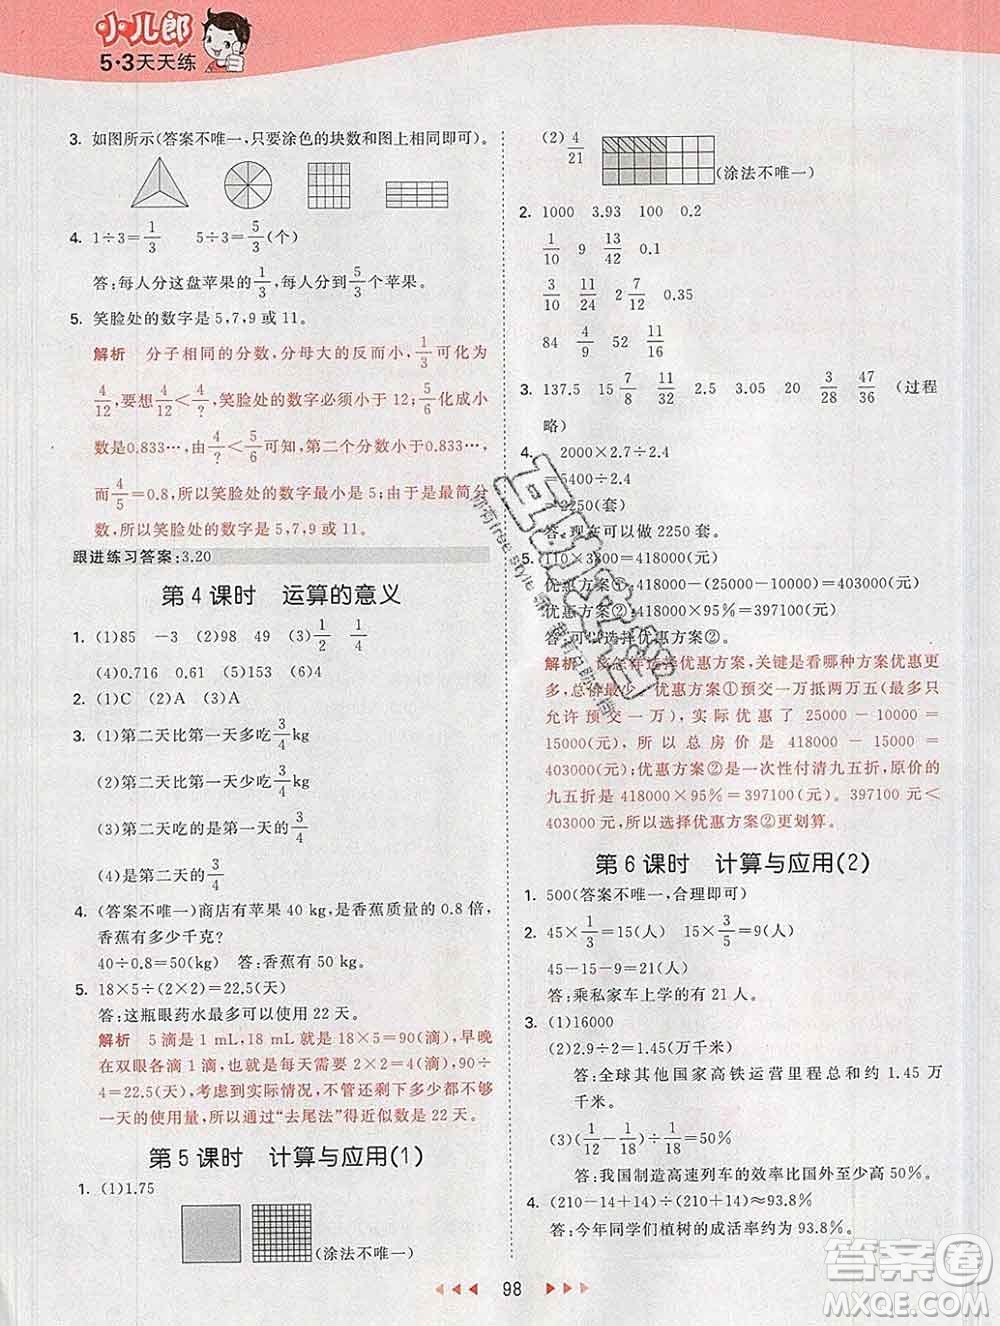 小儿郎
5·3天天练
3. 如图所示(答案不唯一,只要涂色的块数和图上相同即可)。
4. 1÷3=1/3 5÷3=5/3(个)
答:每人分这盘苹果的1/3,每人分到5/3个苹果。
5. 笑脸处的数字是5,7,9或11。
解析 分子相同的分数,分母大的反而小,1/3可化为
4/12,要想4/12<4/?,笑脸处的数字必须小于12;5/6化成小
数是0.833…,由4/?<5/6可知,第二个分数小于0.833…,
而4/5=0.8,所以笑脸处的数字最小是5;由于是最简分
数,所以笑脸处的数字是5,7,9或11。
跟进练习答案:3.20
第4课时 运算的意义
1. (1)85 -3 (2)98 49 (3)1/2 1/4
(4)0.716 0.61 (5)153 (6)4
2. (1)C (2)A (3)A
3. (1)第二天比第一天多吃3/4kg
(2)第二天比第一天少吃3/4kg
(3)第二天吃的是第一天的3/4
(4)是第二天的3/4
4. (答案不唯一)商店有苹果40 kg,是香蕉质量的0.8倍,
香蕉有多少千克?
40÷0.8=50(kg) 答:香蕉有50 kg。
5. 18×5÷(2×2)=22.5(天)
答:这瓶眼药水最多可以用22天。
解析 5滴是1 mL,18 mL就是18×5=90(滴),早晚
在双眼各滴1滴,每天需要2×2=4(滴),能用90÷
4=22.5(天),考虑到实际情况,不管还剩多少都不够
一天的使用量,所以通过“去尾法”得近似数是22天。
第5课时 计算与应用(1)
1. (1)1.75
(涂法不唯一)
(2)4/21
(涂法不唯一)
2. 1000 3.93 100 0.2
1/10 9 13/42 0.1
3/10 11/24 2 7/12 0.35
84 4/9 52 11/16
3. 137.5 15 7/8 11/32 2.5 3.05 20 3/28 47/36 (过程
略)
4. 2000×2.7÷2.4
=5400÷2.4
=2250(套)
答:现在可以做2250套。
5. 110×3800=418000(元)
优惠方案①:418000-25000+10000=403000(元)
优惠方案②:418000×95%=397100(元)
答:可以选择优惠方案②。
解析 该怎样选择优惠方案,关键是看哪种方案优惠更
多,总价最少。优惠方案①预交一万抵两万五(最多只
允许预交一万),实际优惠了25000-10000=
15000(元),所以总房价是418000-15000=
403000(元);优惠方案②是一次性付清九五折,原价的
九五折就是418000×95%=397100(元)。397100<
403000,所以选择优惠方案②更划算。
第6课时 计算与应用(2)
1. 500(答案不唯一,合理即可)
2. 45×1/3=15(人) 15×3/5=9(人)
45-15-9=21(人)
答:乘私家车上学的有21人。
3. (1)16000
(2)2.9÷2=1.45(万千米)
答:全球其他国家高铁运营里程总和是1.45万
千米。
(3)(1/12-1/18)÷1/18=50%
答:我国制造高速列车的效率比国外至少高50%。
4. (210-14+14)÷(210+14)≈93.8%
答:今年同学们植树的成活率约为93.8%。
98
答案圈
MXQE.COM